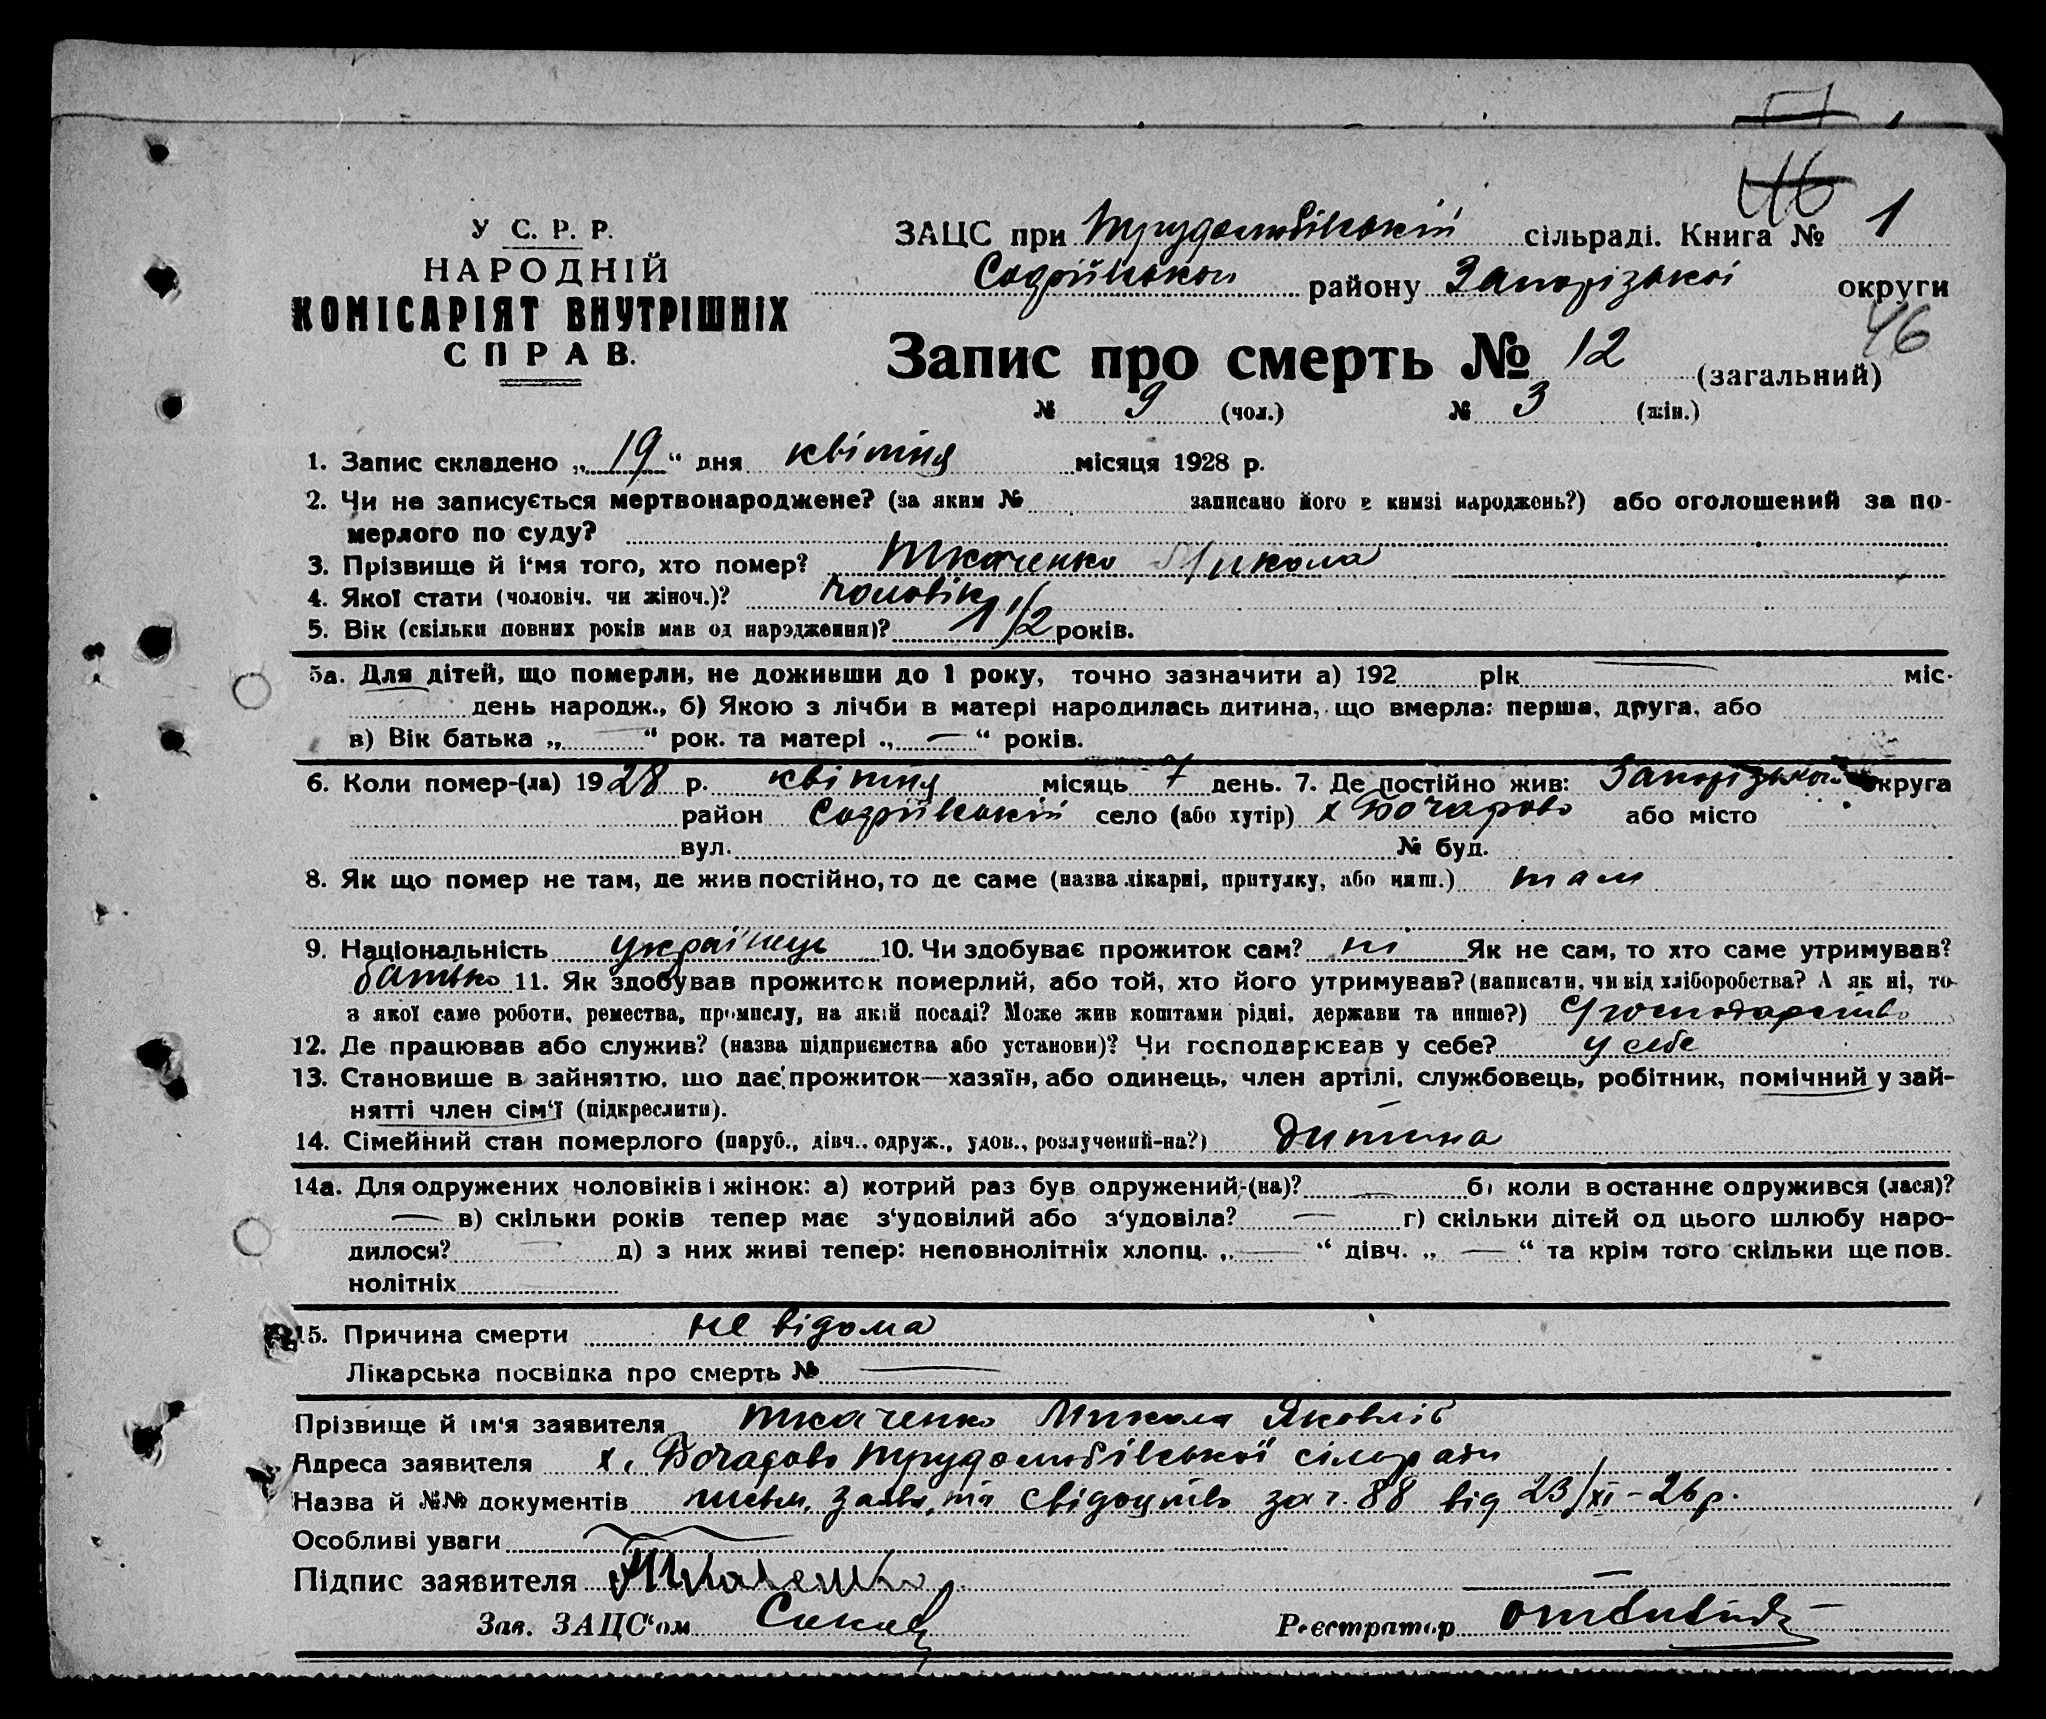 46
У С. Р. Р.
НАРОДНІЙ
КОМІСАРІЯТ ВНУТРІШНІХ
СПРАВ.
ЗАЦС при Трудолюбівській сільраді. Книга № 1
Софіївського району Запорізької округи
46
Запис про смерть № 12 (загальний)
№ 9 (чол.) № 3 (жін.)
1. Запис складено „ 19 “ дня квітня місяця 1928 р.
2. Чи не записується мертвонароджене? (за яким № записано його в книзі народжень?) або оголошений за по-
мерлого по суду?
3. Прізвище й і‘мя того, хто помер? Ткаченко Микола
4. Якої стати (чоловіч. чи жіноч.)? чоловік
5. Вік (скільки повних років мав од народження)? 1 1/2 років.
5а. Для дітей, що померли, не доживши до 1 року, точно зазначити а) 192 рік — міс.
день народж., б) Якою з лічби в матері народилась дитина, що вмерла: перша, друга, або
в) Вік батька „ — “ рок. та матері „ — “ років.
6. Коли помер-(ла) 1928 р. квітня місяць 7 день. 7. Де постійно жив: Запорізької округа
район Софіївській село (або хутір) х Бочарово або місто
вул. № буд.
8. Як що помер не там, де жив постійно, то де саме (назва лікарні, притулку, або инш.) там
9. Національність українець 10. Чи здобуває прожиток сам? ні Як не сам, то хто саме утримував?
батько 11. Як здобував прожиток померлий, або той, хто його утримував? (написати, чи від хліборобства? А як ні, то
з якої саме роботи, ремества, промислу, на якій посаді? Може жив коштами рідні, держави та инше?)
12. Де працював або служив? (назва підприємства або установи)? Чи господарював у себе? у себе
13. Становище в зайняттю, що дає прожиток—хазяїн, або одинець, член артілі, службовець, робітник, помічний у зай-
нятті член сім‘ї (підкреслити).
14. Сімейний стан померлого (паруб., дівч., одруж., удов., розлучений-на?) дитина
14а. Для одружених чоловіків і жінок: а) котрий раз був одружений-(на)? — б) коли в останнє одружився (лася)?
— в) скільки років тепер має з‘удовілий або з‘удовіла? — г) скільки дітей од цього шлюбу наро-
дилося? — д) з них живі тепер: неповнолітніх хлопц. „ — “ дівч. „ — “ та крім того скільки ще пов.
нолітніх
15. Причина смерти не відома
Лікарська посвідка про смерть № —
Прізвище й ім‘я заявителя Ткаченко Микола Яковлів
Адреса заявителя х. Бочарово Трудолюбівської сільради
Назва й №№ документів письм. заява та свідоцтво за ч. 88 від 23/XI-26 р.
Особливі уваги
Підпис заявителя Ткаченко
Зав. ЗАЦС‘ом
Реєстратор